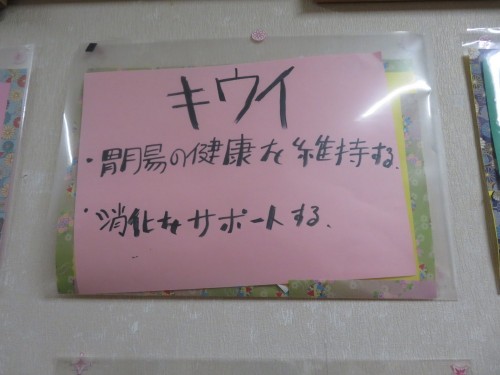 キウイ
・胃腸の健康を維持する.
・消化をサポートする.